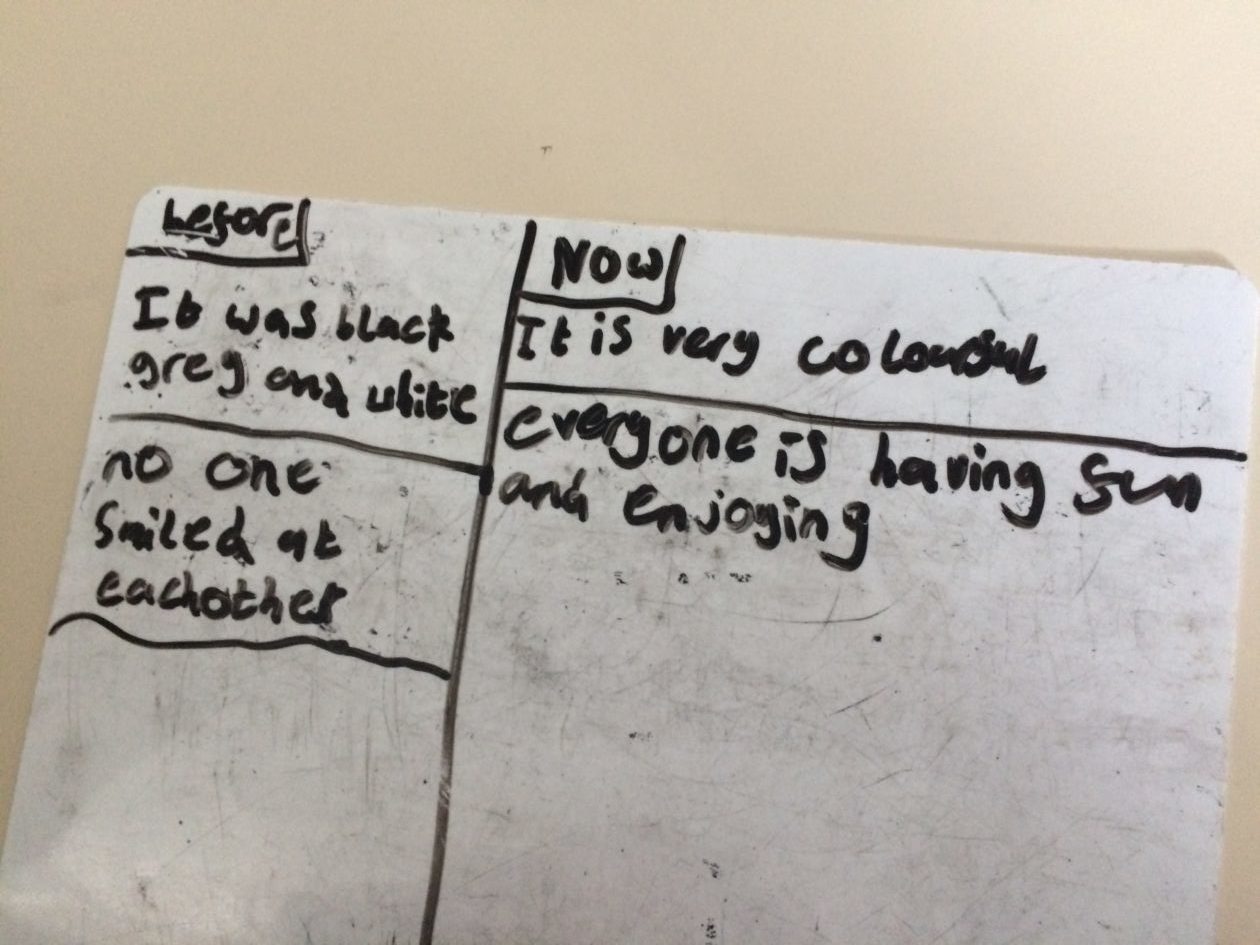 before
It was black
grey and white
no one
smiled at
eachother
Now
It is very colourful
everyone is having fun
and enjoying